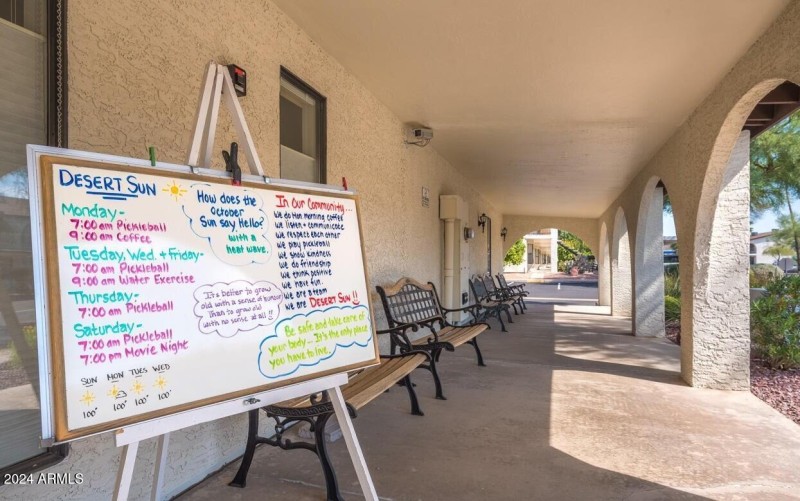 DESERT SUN
Monday-
7:00 am Pickleball
9:00 am Coffee
Tuesday, Wed. + Friday-
7:00 am Pickleball
9:00 am Water Exercise
Thursday-
7:00 am Pickleball
Saturday-
7:00 am Pickleball
7:00 pm Movie Night
SUN MON TUES WED
100° 100° 100° 100°
How does the
October
Sun say Hello?
with a
heat wave.
It's better to grow
old with a sense of humor
than to grow old
with no sense at all!!
In Our Community...
we do Mon morning Coffee
we listen + communicate
we respect each other
we play pickleball
we show kindness
we do friendship
we think positive
we have fun
we are a team
we are DESERT SUN!!
Be safe and take care of
your body... It's the only place
you have to live.
2024 ARMLS